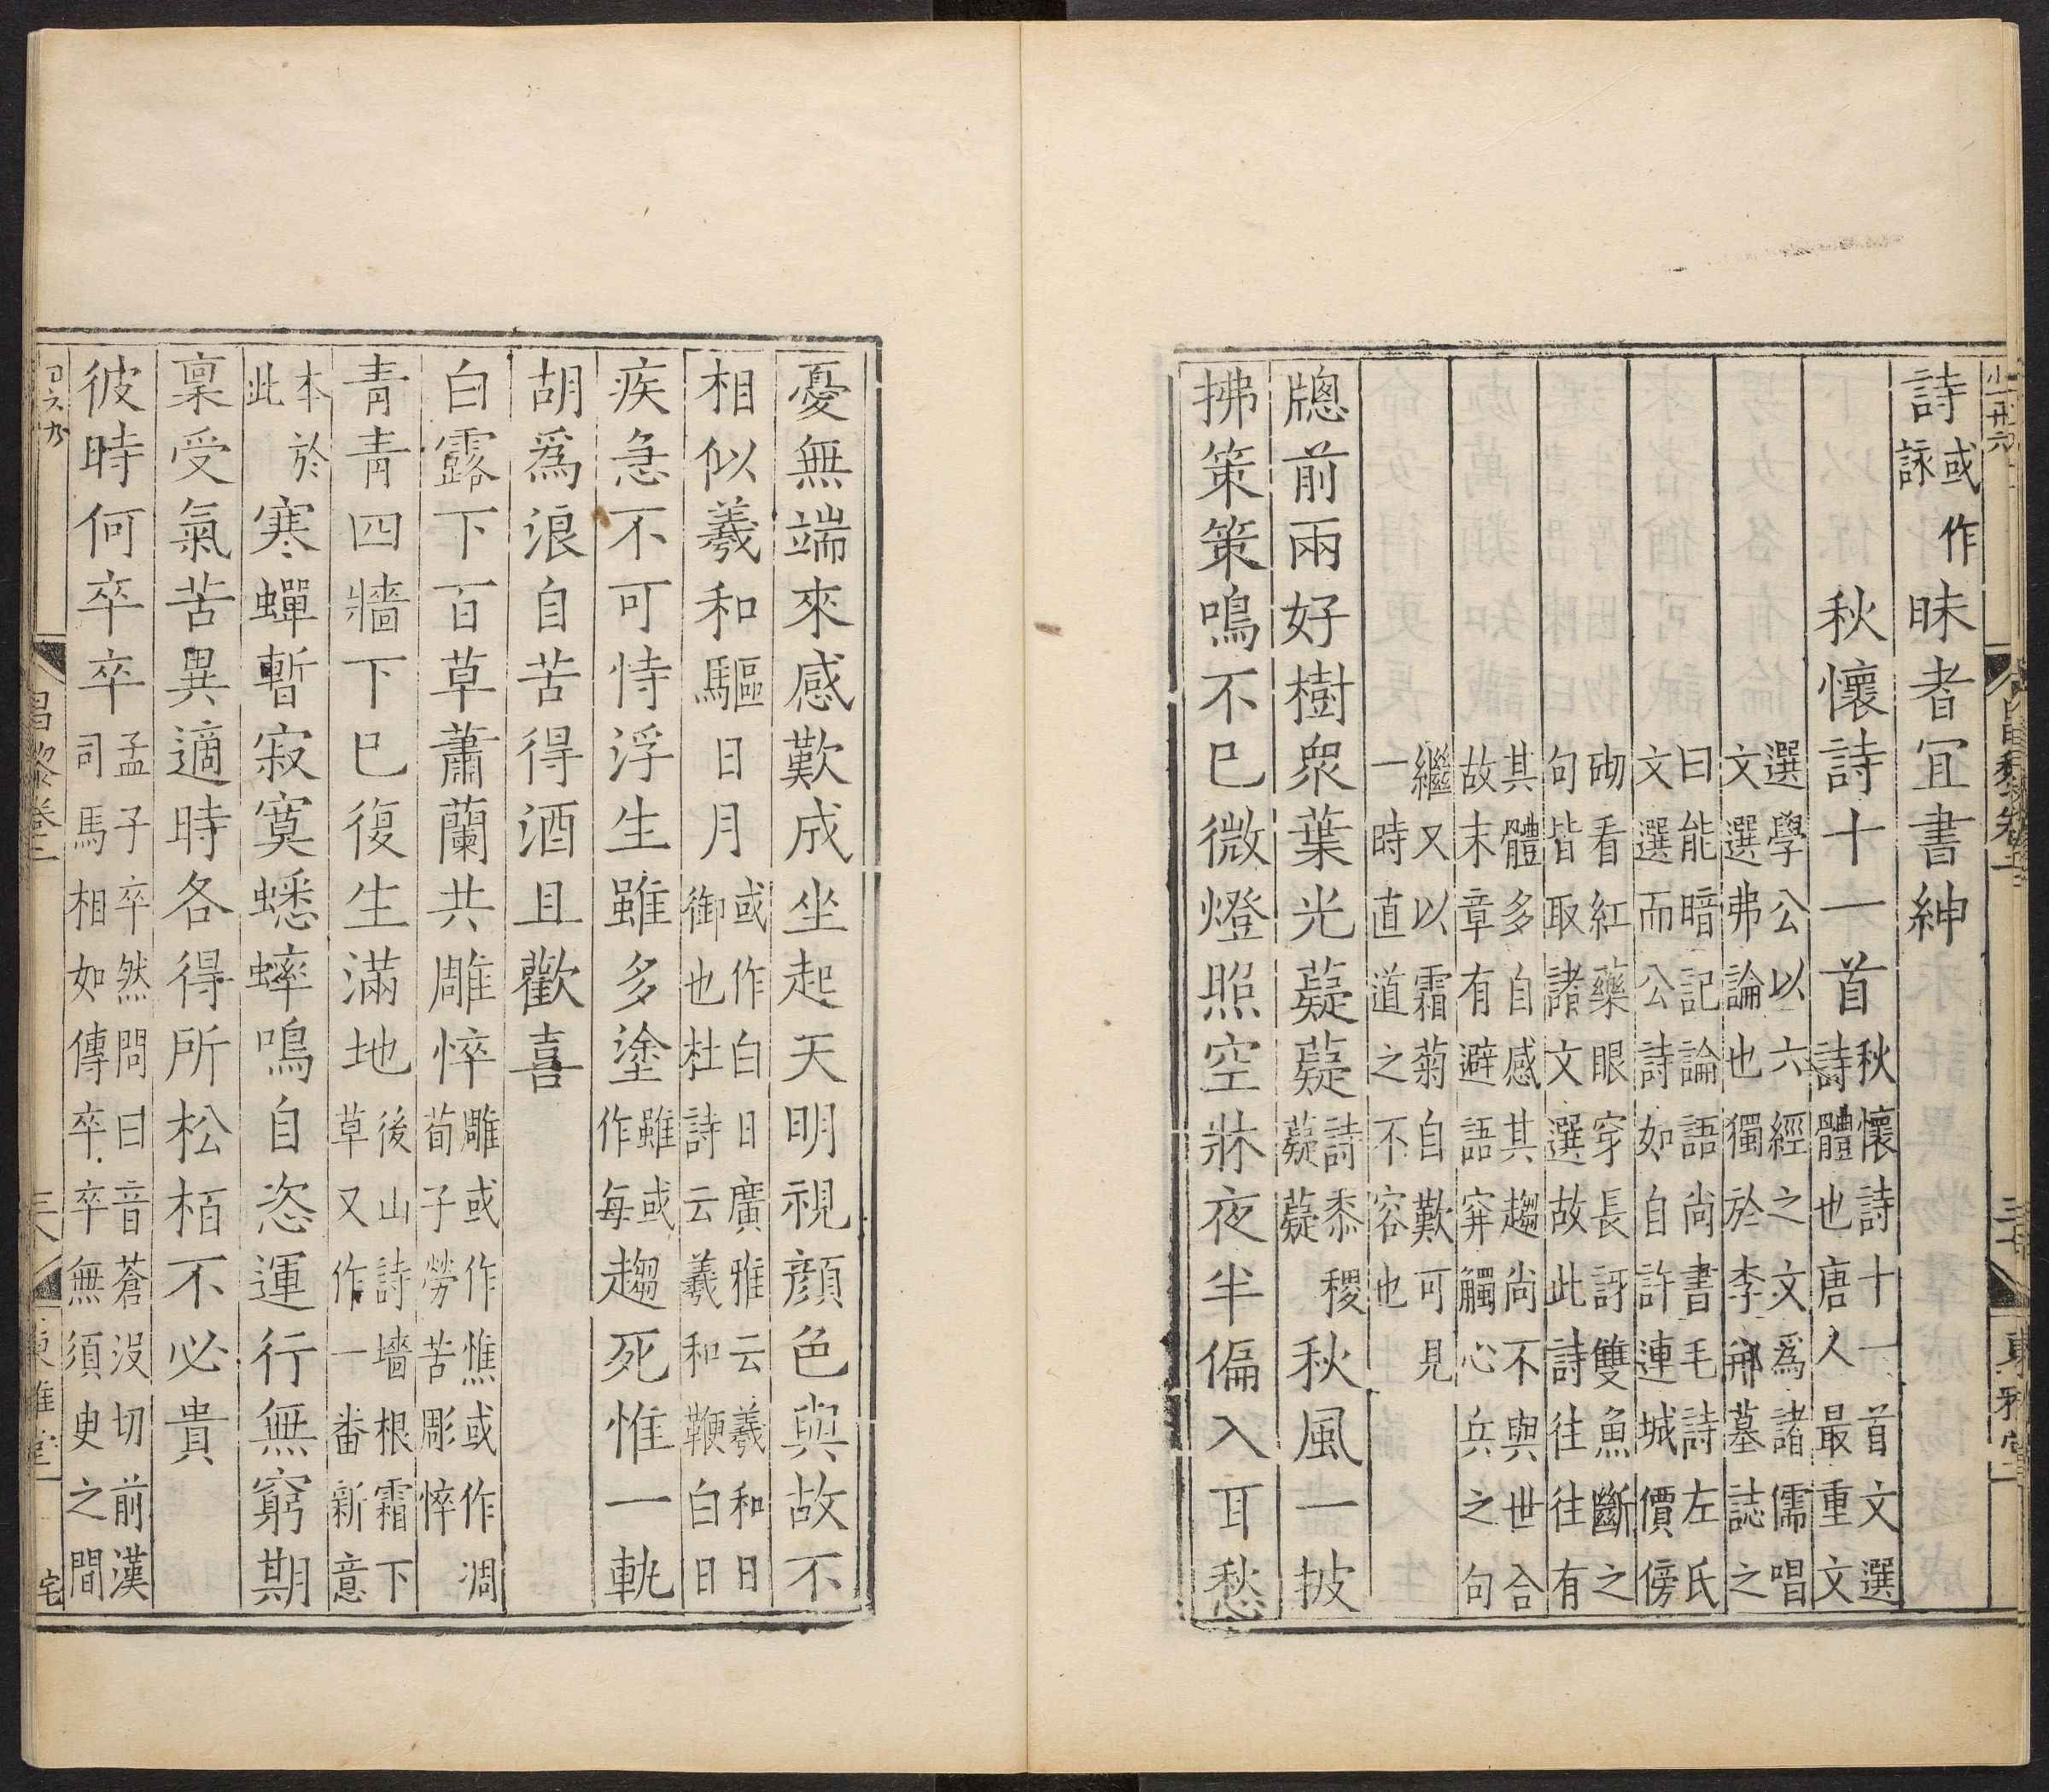 詩或作詠昧者宜書紳
秋懷詩十一首秋懷詩十一首文選詩體也唐人最重文
選學公以六經之文爲諸儒唱文選弗論也獨於李邢墓誌之
曰能暗記論語尚書毛詩左氏文選而公詩如自許連城價傍
砌看紅藥眼穿長訝雙魚斷之句皆取諸文選故此詩往往有
其體多自感其趨尚不與世合故末章有避語穽觸心兵之句
繼又以霜菊自歎可見一時直道之不容也
牕前兩好樹衆葉光薿薿詩黍稷薿薿秋風一披
拂策策鳴不已微燈照空牀夜半偏入耳愁
憂無端來感歎成坐起天明視顔色與故不
相似羲和驅日月或作白日廣雅云羲和日御也杜詩云羲和鞭白日
疾急不可恃浮生雖多塗雖或作每趨死惟一軌
胡爲浪自苦得酒且歡喜
白露下百草蕭蘭共雕悴雕或作憔或作凋荀子勞苦彫悴
青青四牆下已復生滿地後山詩墻根霜下草又作一番新意
本於此寒蟬暫寂寞蟋蟀鳴自恣運行無窮期
稟受氣苦異適時各得所松栢不必貴
彼時何卒卒孟子卒然問曰音蒼沒切前漢司馬相如傳卒卒無須臾之間
昌黎卷一
東雅堂